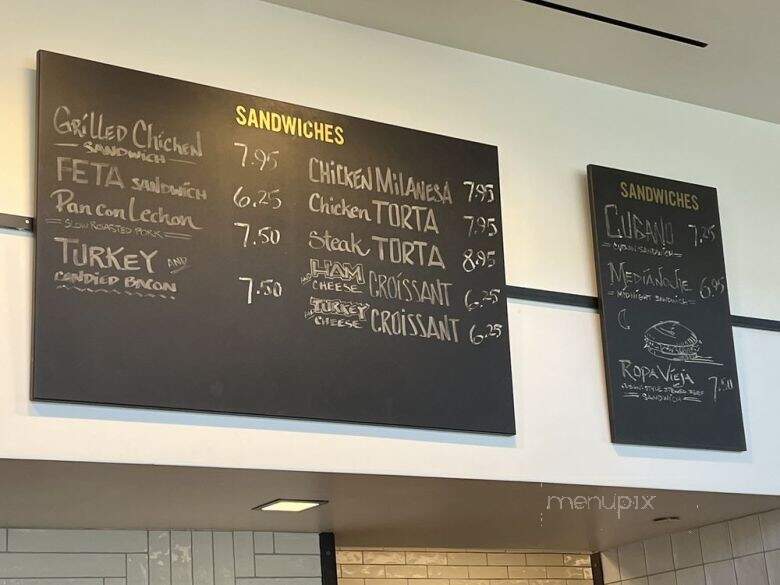 SANDWICHES
GRILLED Chicken 7.95
SANDWICH
FETA SANDWICH 6.25
Pan con Lechon 7.50
SLOW ROASTED PORK
TURKEY AND
CANDIED BACON 7.50
CHICKEN MILANESA 7.95
Chicken TORTA 7.95
Steak TORTA 8.95
HAM AND
CHEESE CROISSANT 6.25
TURKEY AND
CHEESE CROISSANT 6.25
SANDWICHES
CUBANO 7.25
CUBAN SANDWICH
MEDIANOCHE 6.95
MIDNIGHT SANDWICH
ROPA VIEJA 7.50
CUBAN STYLE SHREDDED BEEF
SANDWICH
menupix